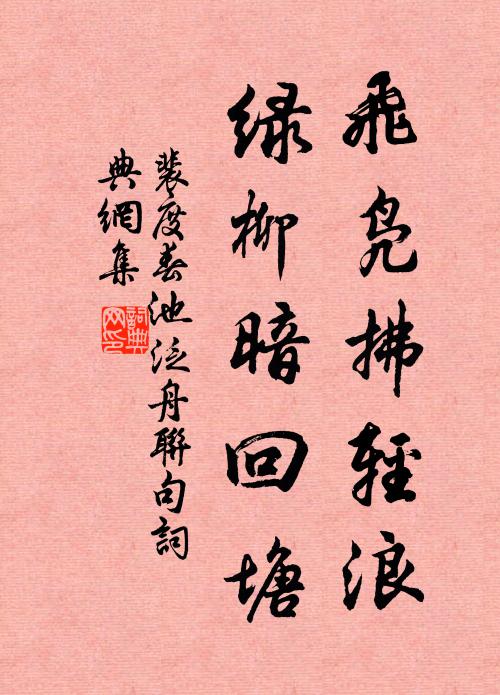 飛鳧拂輕浪
绿柳暗回塘
裴度春池泛舟聯句詞
典網集
詞典网印